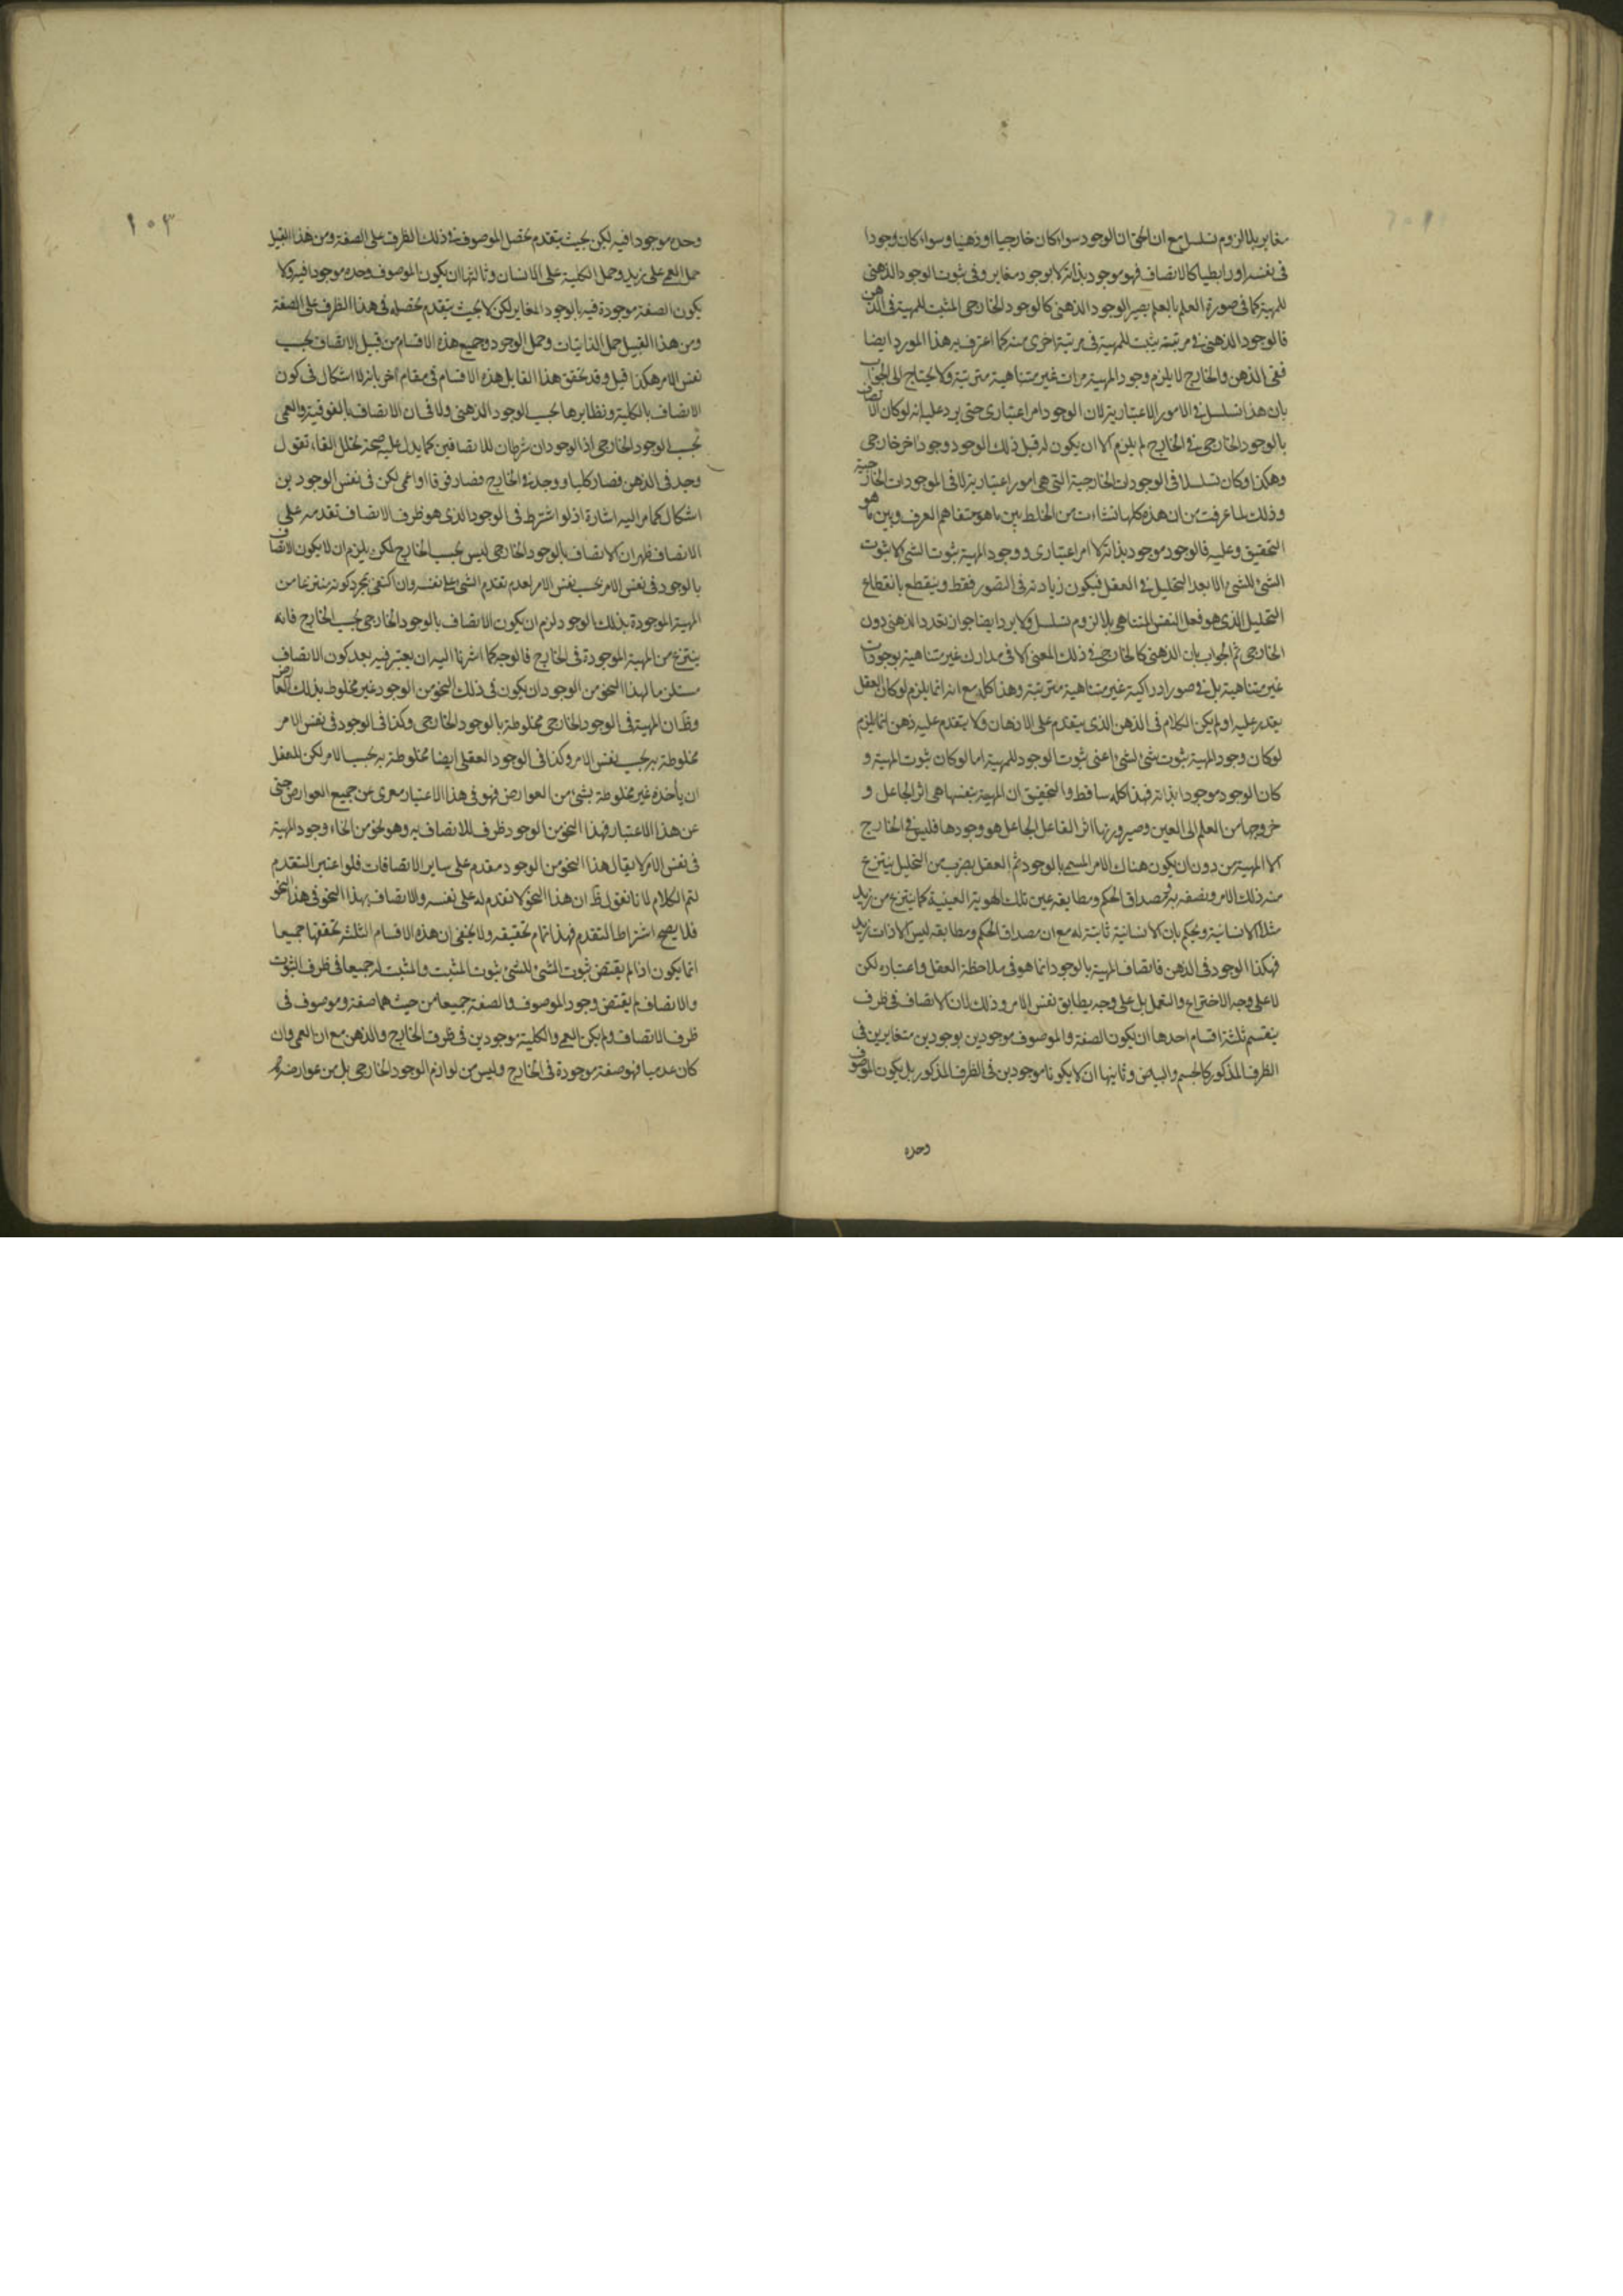 مغاير بلا لزوم تسلسل مع ان الحق ان الوجود سواء كان خارجيا او ذهنيا وسواء كان وجودا
فى نفسه او رابطيا كالاتصاف فهو موجود بذاته لا بوجود مغاير وفى ثبوت الوجود الذهنى
للمهية كما فى صورة العلم بالعلم يصير الوجود الذهنى كالوجود الخارجى المثبت للمهية فى الذهن
فالوجود الذهنى فى مرتبة يثبت للمهية فى مرتبة اخرى منه كما اعترف به هذا المورد ايضا
ففى الذهن والخارج لا يلزم وجود المهية مرات غير متناهية مترتبة ولا يحتاج الى الجواب
بان هذا تسلسل فى الامور الاعتبارية لان الوجود امر اعتبارى حتى يرد عليه انه لو كان الاتصاف
بالوجود الخارجى فى الخارج لم يلزم الا ان يكون له قبل ذلك الوجود وجود اخر خارجى
وهكذا وكان تسلسلا فى الوجودات الخارجية التى هى امور اعتبارية لا فى الموجودات الخارجية
وذلك لما عرفت من ان هذه كلها نشات من الخلط بين ما هو متفاهم العرف وبين ما هو
التحقيق وعليه فالوجود موجود بذاته لا امر اعتبارى ووجود المهية ثبوت الشئ لا ثبوت
الشئ للشئ الا بعد التحليل فى العقل فيكون زيادته فى التصور فقط وينقطع بانقطاع
التحليل الذى هو فعل النفس المتناهى بلا لزوم تسلسل ولا يرد ايضا جواز تعدد الذهنى دون
الخارجى ثم الجواب بان الذهنى كالخارجى فى ذلك المعنى لا فى مدارك غير متناهية بوجودات
غير متناهية بل فى صور ادراكية غير متناهية مترتبة وهذا كله مع انه انما يلزم لو كان العقل
يقدر عليه او لم يكن الكلام فى الذهن الذى يتقدم على الاذهان ولا يتقدم عليه ذهن انما يلزم
لو كان وجود المهية ثبوت شئ لشئ اعنى ثبوت الوجود للمهية اما لو كان ثبوت المهية و
كان الوجود موجودا بذاته فهذا كله ساقط والتحقيق ان المهية بنفسها هى اثر الجاعل و
خروجها من العلم الى العين وصيرورتها اثر الفاعل الجاعل هو وجودها فليس فى الخارج
الا المهية من دون ان يكون هناك الامر المسمى بالوجود ثم العقل بضرب من التحليل ينتزع
منه ذلك الامر ويصفه به ومصداق الحكم ومطابقه عين تلك الهوية العينية كما ينتزع من زيد
مثلا الانسانية ويحكم بان الانسانية ثابتة له مع ان مصداق الحكم ومطابقه ليس الا ذات زيد
فهكذا الوجود فى الذهن فاتصاف المهية بالوجود انما هو فى ملاحظة العقل واعتباره لكن
لا على وجه الاختراع والتعمل بل على وجه يطابق نفس الامر وذلك لان الاتصاف فى ظرف
ينقسم ثلثة اقسام احدها ان يكون الصفة والموصوف موجودين بوجودين متغايرين فى
الظرف المذكور كالجسم والبياض وثانيها ان لا يكونا موجودين فى الظرف المذكور بل يكون الموصوف
وحده
١٠٣
وحده موجودا فيه لكن بحيث يتقدم تحصل الموصوف فى ذلك الظرف على الصفة ومن هذا القبيل
حمل العمى على زيد وحمل الكلية على الانسان وثالثها ان يكون الموصوف وحده موجودا فيه ولا
يكون الصفة موجودة فيه بالوجود المغاير لكن لا بحيث يتقدم تحصله فى هذا الظرف على الصفة
ومن هذا القبيل حمل الذاتيات وحمل الوجود وجميع هذه الاقسام من قبيل الاتصاف بحسب
نفس الامر هكذا قيل وقد تحقق هذا القايل هذه الاقسام فى مقام اخر بانه لا اشكال فى كون
الاتصاف بالكلية ونظايرها بحسب الوجود الذهنى ولا فى ان الاتصاف بالفوقية والعمى
بحسب الوجود الخارجى اذ الوجودان شرطان للاتصافين كما يدل عليه صحة تخلل الفاء تقول
وجد فى الذهن فصار كليا ووجد فى الخارج فصار فوقا او اعمى لكن فى نفس الوجودين
اشكال كما مر اليه اشارة اذ لو اشترط فى الوجود الذى هو ظرف الاتصاف تقدمه على
الاتصاف ظهر ان الاتصاف بالوجود الخارجى ليس بحسب الخارج لكن يلزم ان لا يكون الاتصاف
بالوجود فى نفس الامر بحسب نفس الامر لعدم تقدم الشئ على نفسه وان اكتفى بمجرد كونه منتزعا من
المهية الموجودة بذلك الوجود لزم ان يكون الاتصاف بالوجود الخارجى بحسب الخارج فانه
ينتزع من المهية الموجودة فى الخارج فالوجه كما اشرنا اليه ان يعتبر فيه بعد كون الاتصاف
مستلزما لهذا النحو من الوجود ان يكون فى ذلك النحو من الوجود غير مخلوط بذلك العارض
وظ ان المهية فى الوجود الخارجى مخلوطة بالوجود الخارجى وكذا فى الوجود فى نفس الامر
مخلوطة به بحسب نفس الامر وكذا فى الوجود العقلى ايضا مخلوطة به بحسب الامر لكن للعقل
ان يأخذه غير مخلوطة بشئ من العوارض فهو فى هذا الاعتبار معرى عن جميع العوارض حتى
عن هذا الاعتبار فهذا النحو من الوجود ظرف للاتصاف به وهو نحو من انحاء وجود المهية
فى نفس الامر لا يقال هذا النحو من الوجود مقدم على ساير الاتصافات فلو اعتبر التقدم
لتم الكلام لانا نقول ظ ان هذا النحو لا تقدم له على نفسه والاتصاف بهذا النحو فى هذا النحو
فلا يصح اشتراط التقدم فهذا تمام تحقيقه ولا يخفى ان هذه الاقسام الثلثة تحققها جميعا
انما يكون اذا لم يقتض ثبوت الشئ للشئ ثبوت المثبت والمثبت له جميعا فى ظرف الثبوت
والاتصاف لم يقتض وجود الموصوف والصفة جميعا من حيث هما صفة وموصوف فى
ظرف الاتصاف ولم يكن العمى والكلية موجودين فى ظرف الخارج والذهن مع ان العمى وان
كان عدميا فهو صفة موجودة فى الخارج وليس من لوازم الوجود الخارجى بل من عوارضه